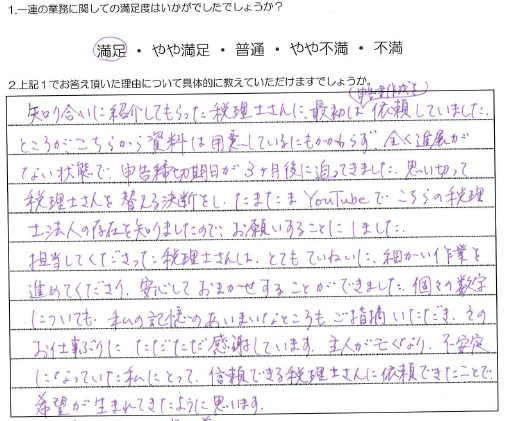 1.一連の業務に関しての満足度はいかがでしたでしょうか?
満足 ・ やや満足 ・ 普通 ・ やや不満 ・ 不満
2.上記1でお答え頂いた理由について具体的に教えていただけますでしょうか。
申告書作成を
知り合いに紹介してもらった税理士さんに、最初は依頼していました。
ところが、こちらから資料は用意しているにもかかわらず全く進展が
ない状態で、申告締切期日が3ヶ月後に迫ってきました。思い切って
税理士さんを替える決断をし、たまたまYouTubeでこちらの税理
士法人の存在を知りましたので、お願いすることにしました。
担当してくださった税理士さんは、とてもていねいに、細かい作業を
進めてくださり、安心しておまかせすることができました。個々の数字
についても、私の記憶のあいまいなところもご指摘いただき、その
お仕事ぶりに、ただただ感謝しています。主人が亡くなり、不安定
になっていた私にとって、信頼できる税理士さんに依頼できたことで
希望が生まれてきたように思います。